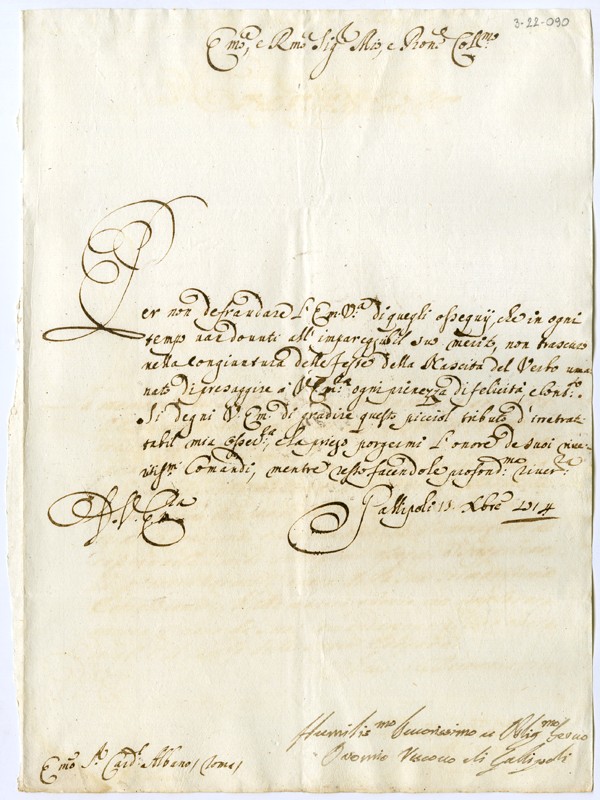 3-22-090
Em̃o, e Rm̃o Sigr Mio, e Pron̄e Colmo
Per non defraudare l'Em. Va di quegli ossequij, che in ogni
tempo van dovuti all'impareggibil suo merito, non trascuro
nella congiuntura delle feste della Nascita del Verbo uma
nato di presaggire a V. Em.za ogni pienezza di felicità, e
Si degni V. Em.a di gradire questo picciol tributo d'irretrat
tabil mia e la priego porgermi l'onore de suoi rive
Comandi, mentre resto facendole profond.me river.za
A. V. Em.za
Gallipoli 13. Xbre 1714
Humilis.mo e Oblig.mo Servo
Oronzio Vescovo di Gallipoli
Em̃o Sr Card.l Albano / Roma /